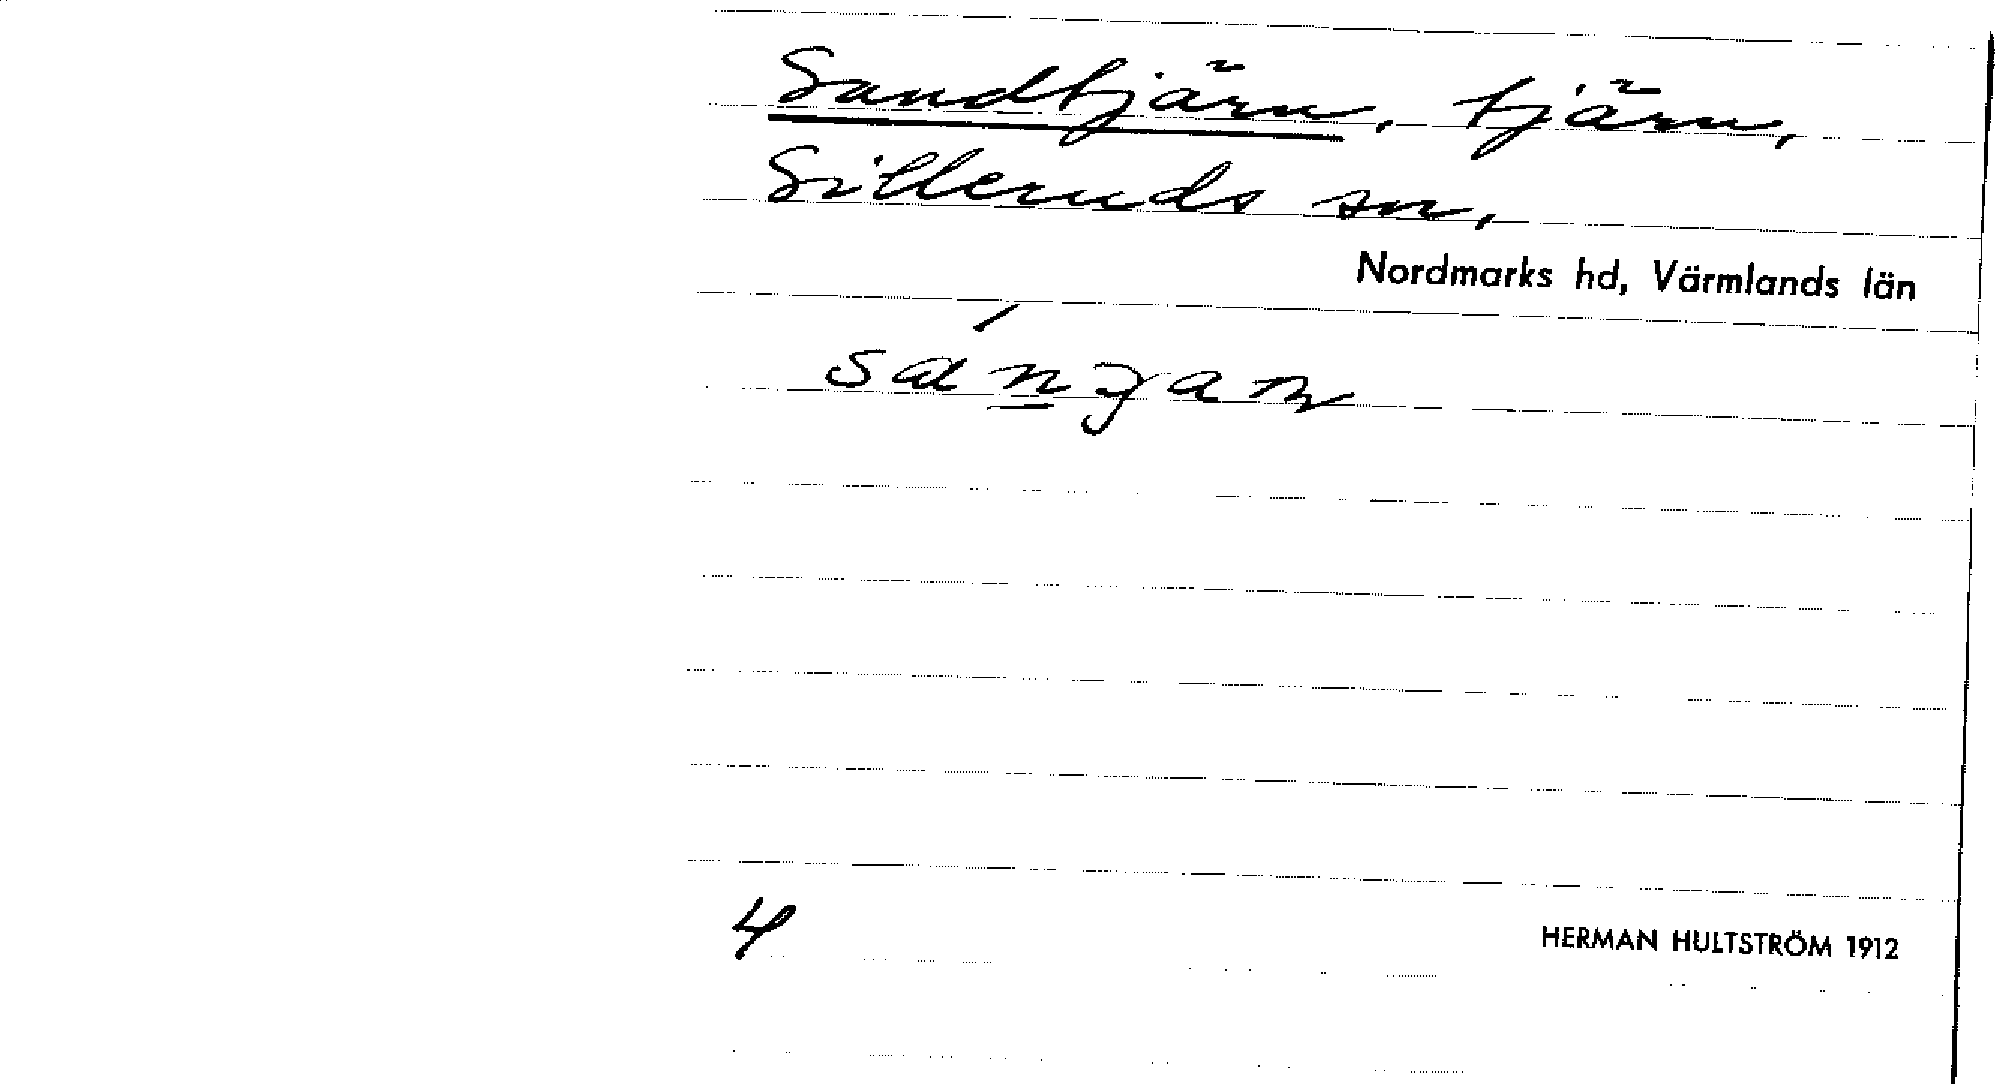 Sandtjärn, tjärn,
Silleruds sn,
Nordmarks hd, Värmlands län
4
HERMAN HULTSTRÖM 1912